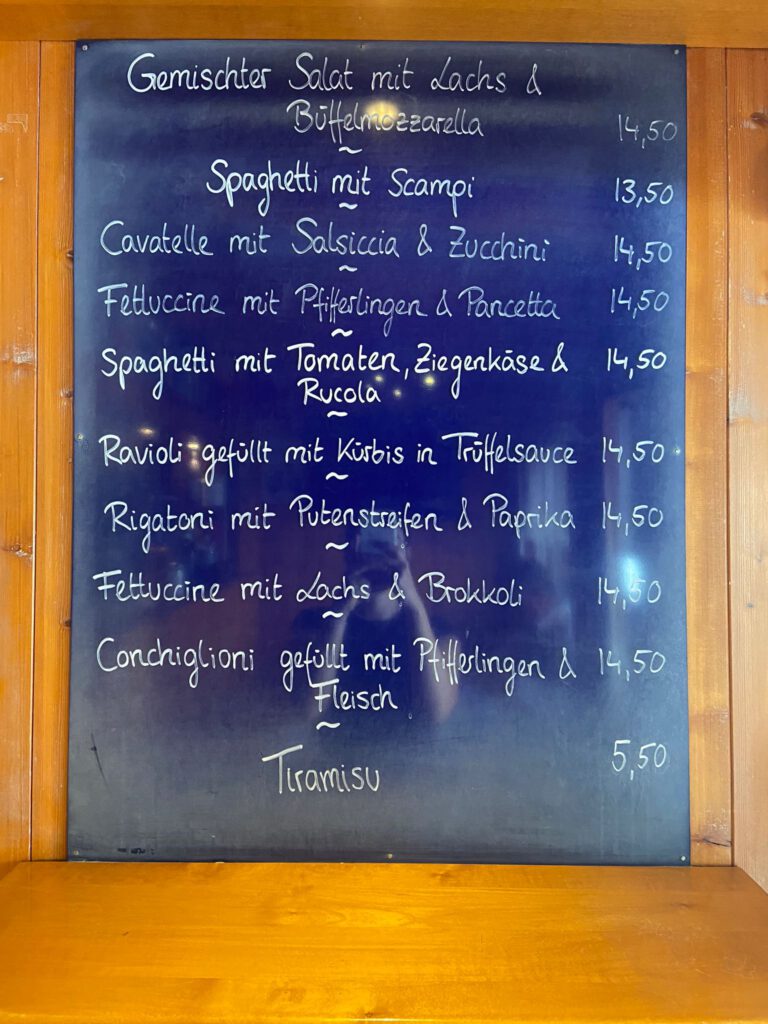 Gemischter Salat mit Lachs &
Büffelmozzarella 14,50
~
Spaghetti mit Scampi 13,50
~
Cavatelle mit Salsiccia & Zucchini 14,50
~
Fettuccine mit Pfifferlingen & Pancetta 14,50
~
Spaghetti mit Tomaten, Ziegenkäse & 14,50
Rucola
~
Ravioli gefüllt mit Kürbis in Trüffelsauce 14,50
~
Rigatoni mit Putenstreifen & Paprika 14,50
~
Fettuccine mit Lachs & Brokkoli 14,50
~
Conchiglioni gefüllt mit Pfifferlingen & 14,50
Fleisch
~
Tiramisu 5,50